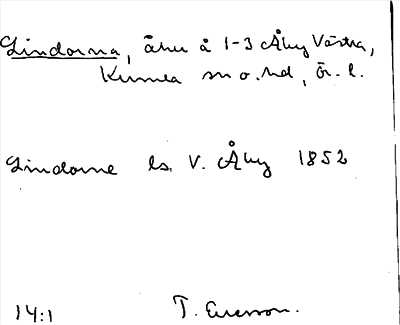 Lindorna, åker å 1-3 Åby Västra,
Kumla sn o. hd, Ör. l.
Lindorne ls. V. Åby 1852
14:1 T. Ericsson.